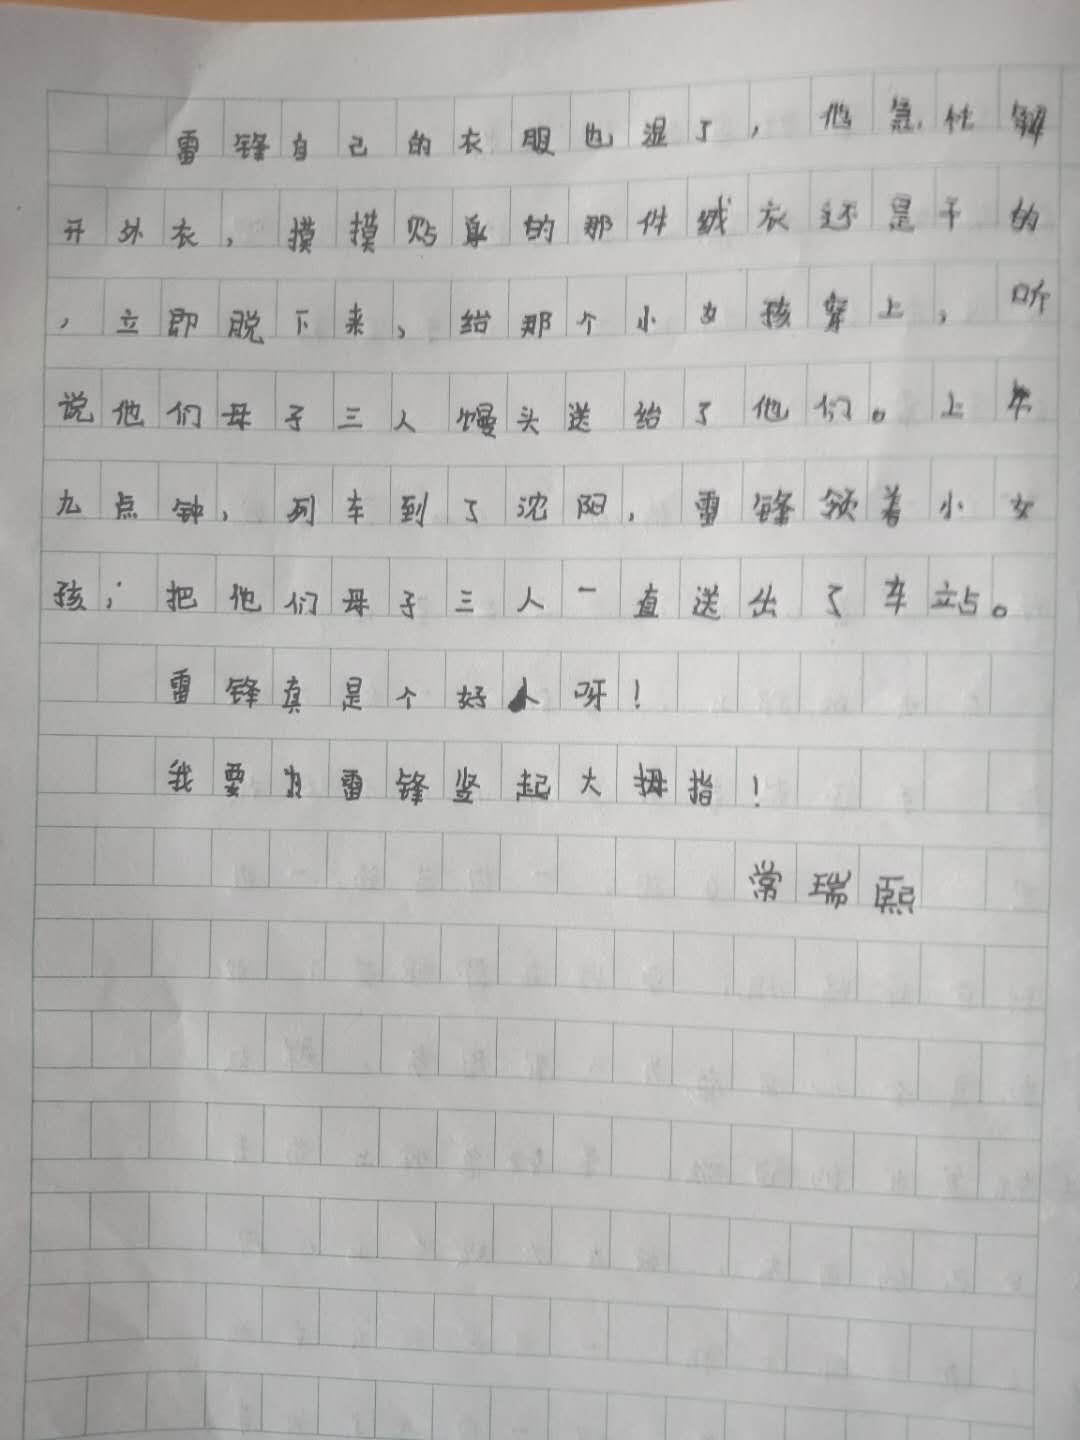 雷锋自己的衣服也湿了，他急忙解
开外衣，摸摸贴身的那件绒衣还是干的
，立即脱下来，给那个小女孩穿上，听
说他们母子三人馒头送给了他们。上午
九点钟，列车到了沈阳，雷锋领着小女
孩，把他们母子三人一直送出了车站。
雷锋真是个好人呀！
我要为雷锋竖起大拇指！
常瑞熙